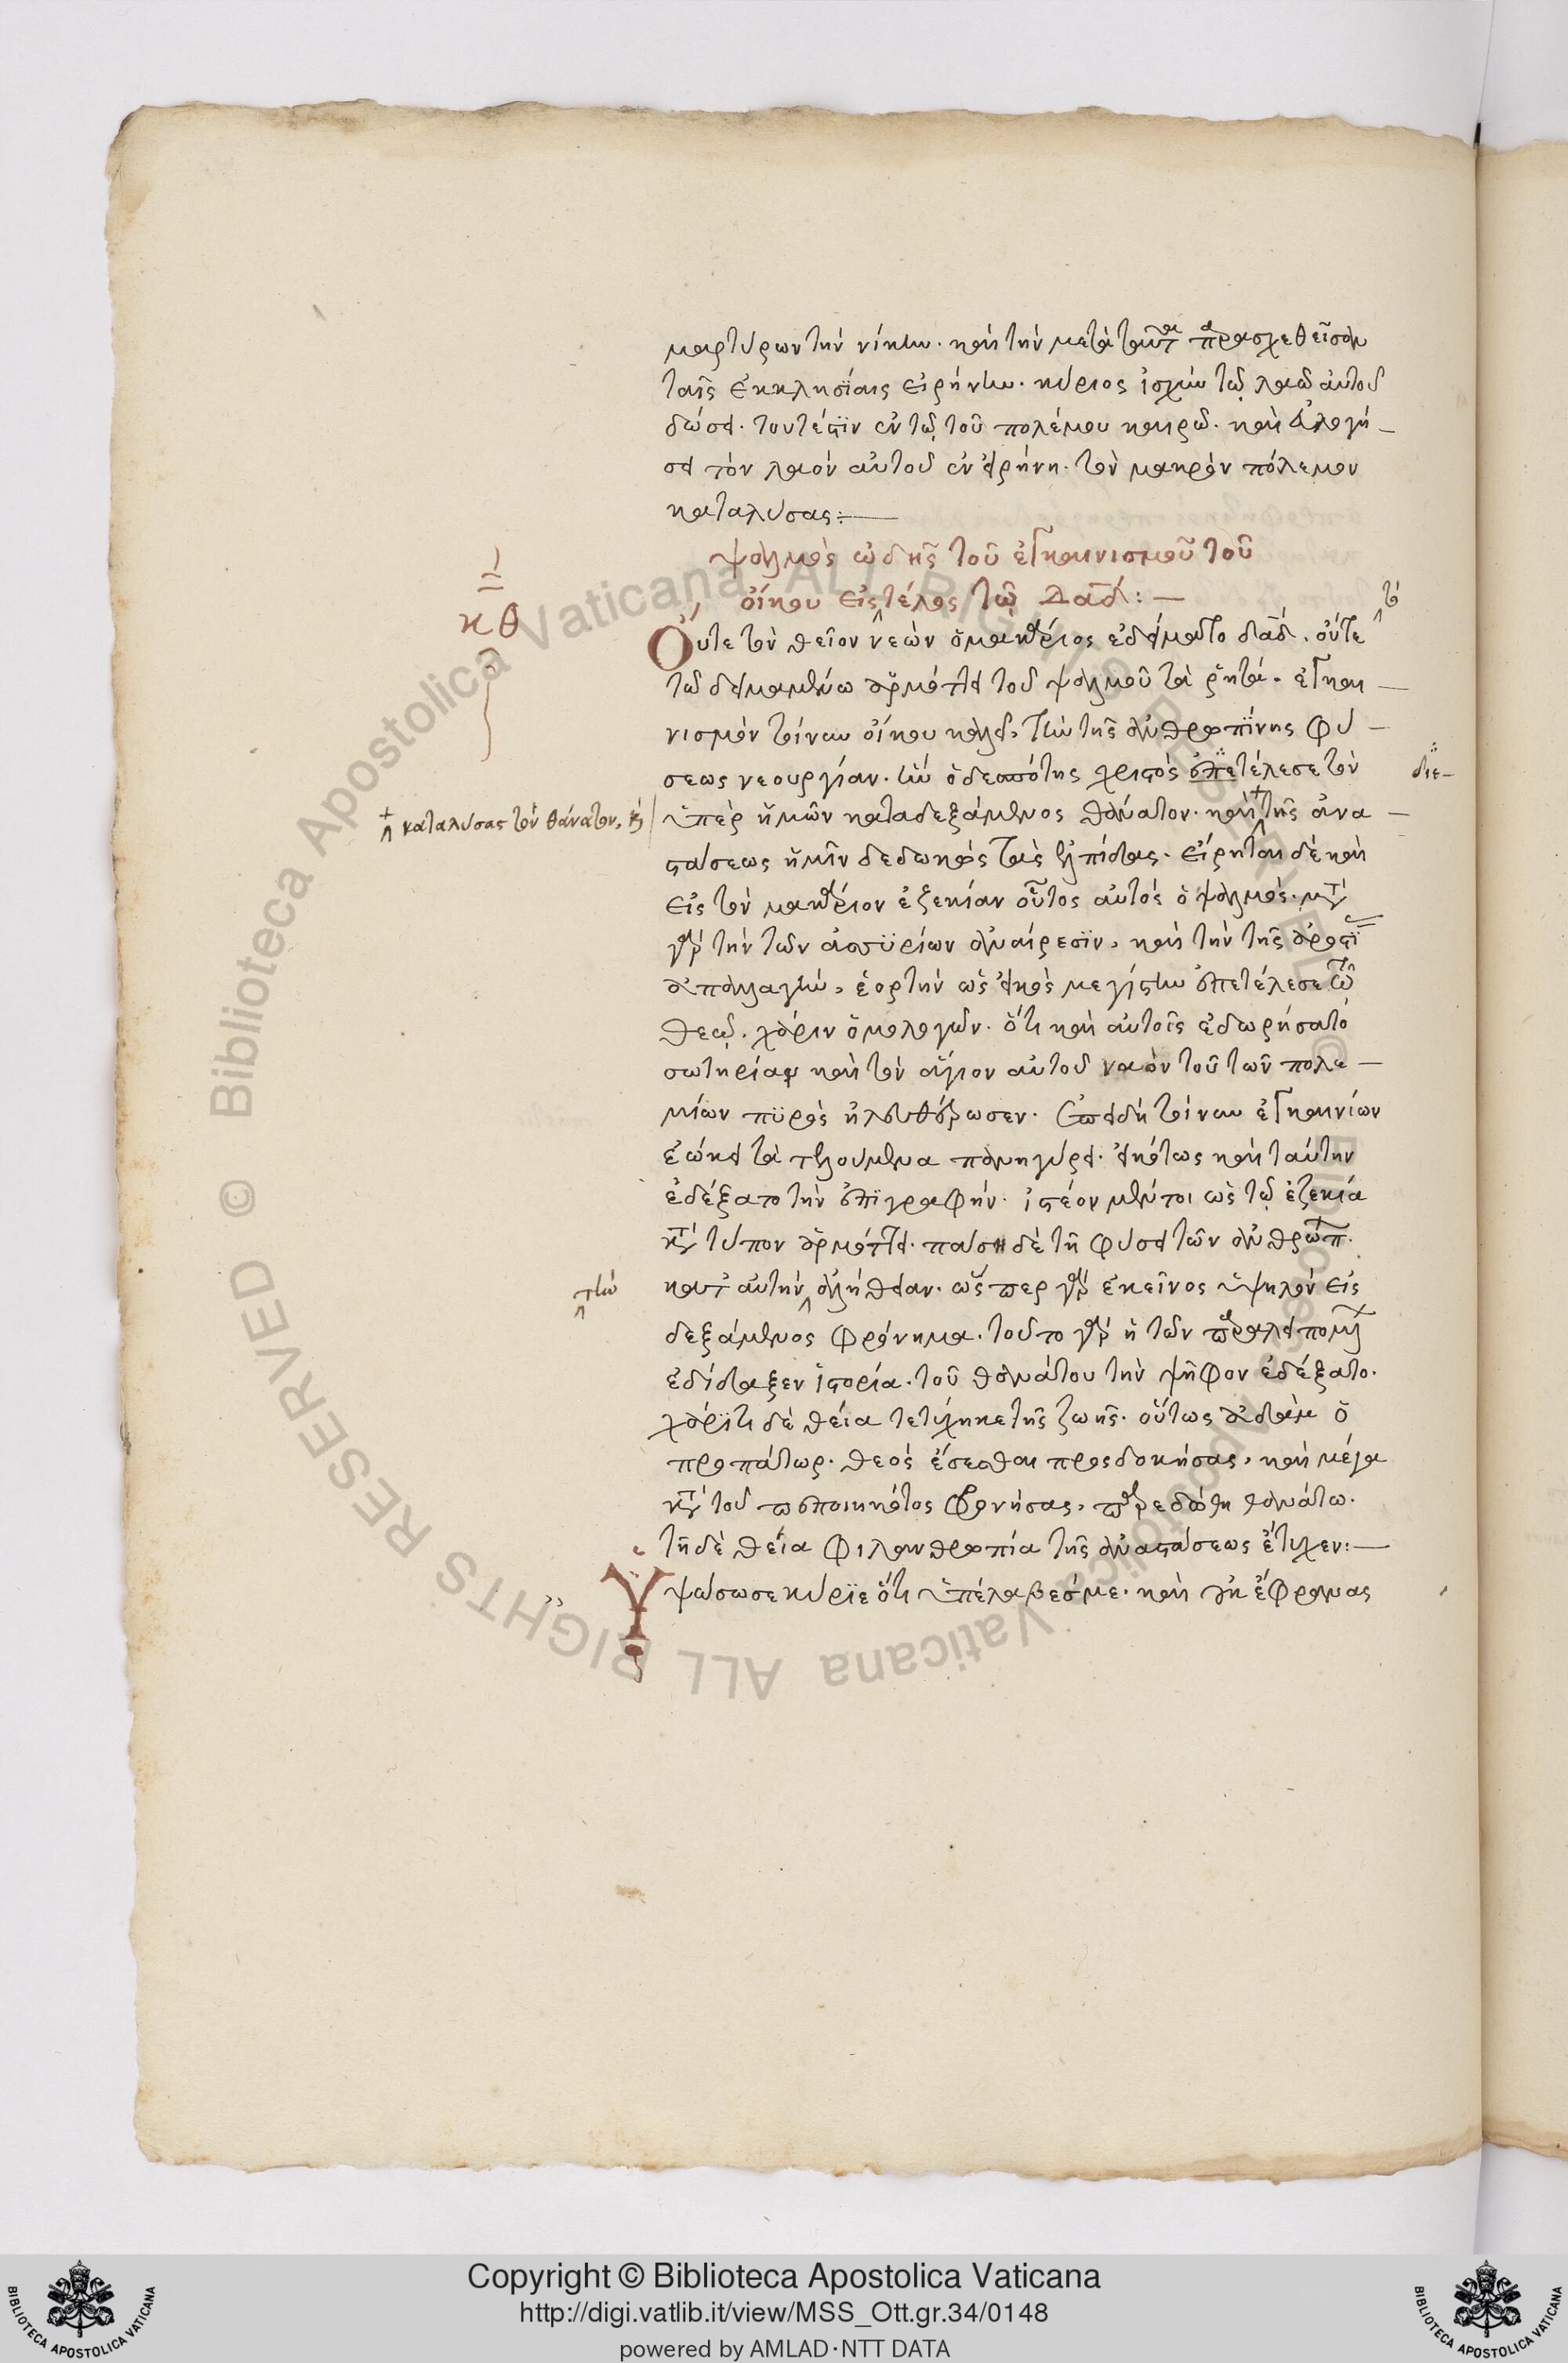 μαρτύρων τὴν νίκην. καὶ τὴν μετὰ ταῦτα παρασχεθεῖσαν
ταῖς ἐκκλησίαις εἰρήνην. κύριος ἰσχὺν τῷ λαῷ αὐτοῦ
δώσει. τουτέστιν ἐν τῷ τοῦ πολέμου καιρῷ. καὶ εὐλογή
σει τὸν λαὸν αὐτοῦ ἐν εἰρήνη. τὸν μακρὸν πόλεμον
καταλύσας:
ψαλμὸς ὠδῆς τοῦ ἐγκαινισμοῦ τοῦ
οἴκου εἰς τέλος τῶ Δαδ:
κθ
Οὔτε τὸν θεῖον νεὼν ὁ μακάριος ἐδείματο δαδ. οὔτε
τῶ δειμαμένω ἁρμόττει τοῦ ψαλμοῦ τὰ ῥητά. ἐγκαι
νισμὸν τοίνυν οἴκου καλεῖ, τὴν τῆς ἀνθρωπίνης φύ
σεως νεουργίαν. ἣν ὁ δεσπότης χριστὸς ἐπετέλεσε τὸν
διε
ὑπὲρ ἡμῶν καταδεξάμενος θάνατον. καὶ τῆς ἀνα
καταλύσας τὸν θάνατον, καὶ
στάσεως ἡμῖν δεδωκὸς τὰς ἐλπίδας. εἴρηται δὲ καὶ
εἰς τὸν μακάριον ἐξεκίαν οὗτος αὐτὸς ὁ ψαλμὸς. μετὰ
γὰρ τὴν τῶν ἀσσυρίων ἀναίρεσιν, καὶ τὴν τῆς ἀρωστί
ἀπαλλαγὴν, ἑορτὴν ὡς εἰκὸς μεγίστην ἐπετέλεσε τῶ
θεῷ. χάριν ὁμολογῶν. ὅτι καὶ αὐτοῖς ἐδωρήσατο
σωτηρίαν καὶ τὸν ἅγιον αὐτοῦ ναὸν τοῦ τῶν πολε
μίων πυρὸς ἠλευθέρωσεν. ἐπειδὴ τοίνυν ἐγκαινίων
ἐώκει τὰ τελούμενα πανηγύρει. εἰκότως καὶ ταύτην
ἐδέξατο τὴν ἐπιγραφήν. ἰστέον μέντοι ὡς τῷ ἐζεκία
κατὰ τύπον ἁρμόττει. πάση δὲ τῆ φύσει τῶν ἀνθρώπ
κατ αὐτὴν ἀλήθειαν. ὥσπερ γὰρ ἐκεῖνος ὑψηλὸν εἰς
τὴν
δεξάμενος φρόνημα. τοῦτο γὰρ ἡ τῶν παραλειπομ
ἐδίδαξεν ἱστορία. τοῦ θανάτου τὴν ψῆφον ἐδέξατο.
χάριτι δὲ θεία τετύχηκε τῆς ζωῆς. οὕτως ἀδὰμ ὁ
προπάτωρ. θεὸς ἔσεσθαι προσδοκήσας, καὶ μέγα
κατὰ τοῦ πεποιηκότος φρονήσας, παρεδόθη θανάτω.
τῆ δὲ θεία φιλανθρωπία τῆς ἀναστάσεως ἔτυχεν:
Ὑψώσω σε κύριε ὅτι ὑπέλαβές με. καὶ οὐκ ἔφρανας
Copyright © Biblioteca Apostolica Vaticana
http://digi.vatlib.it/view/MSS_Ott.gr.34/0148
powered by AMLAD·NTT DATA
BIBLIOTECA APOSTOLICA VATICANA
BIBLIOTECA APOSTOLICA VATICANA
© Biblioteca Apostolica Vaticana ALL RIGHTS RESERVED